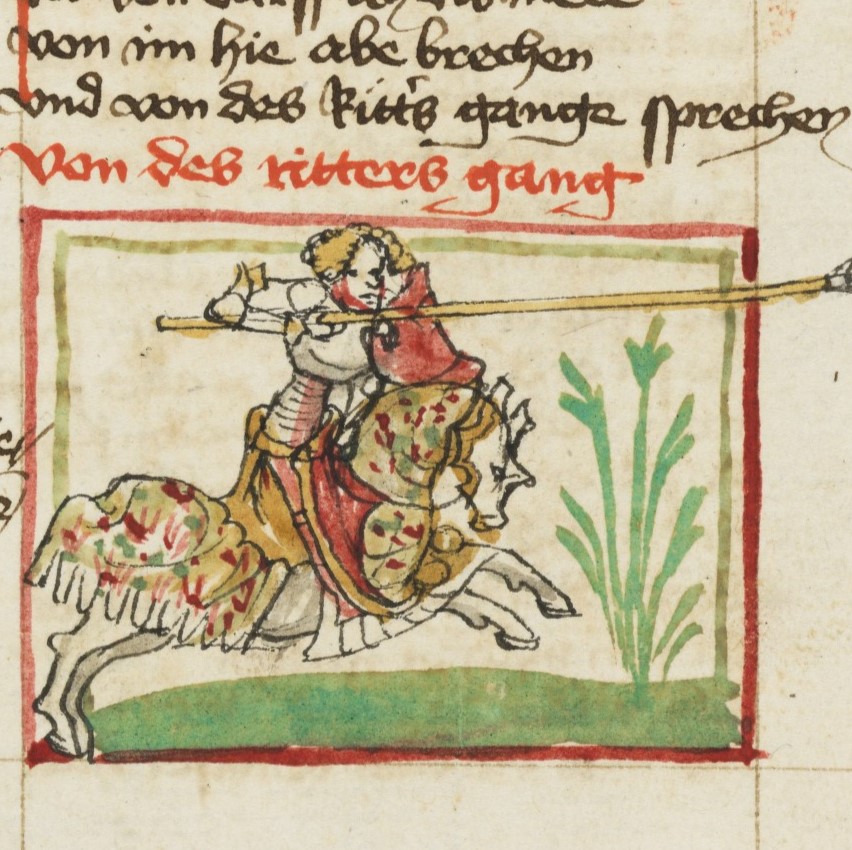 von im hie abe brechen
vnd von des Ritt's gange sprechen
Von des ritters gang